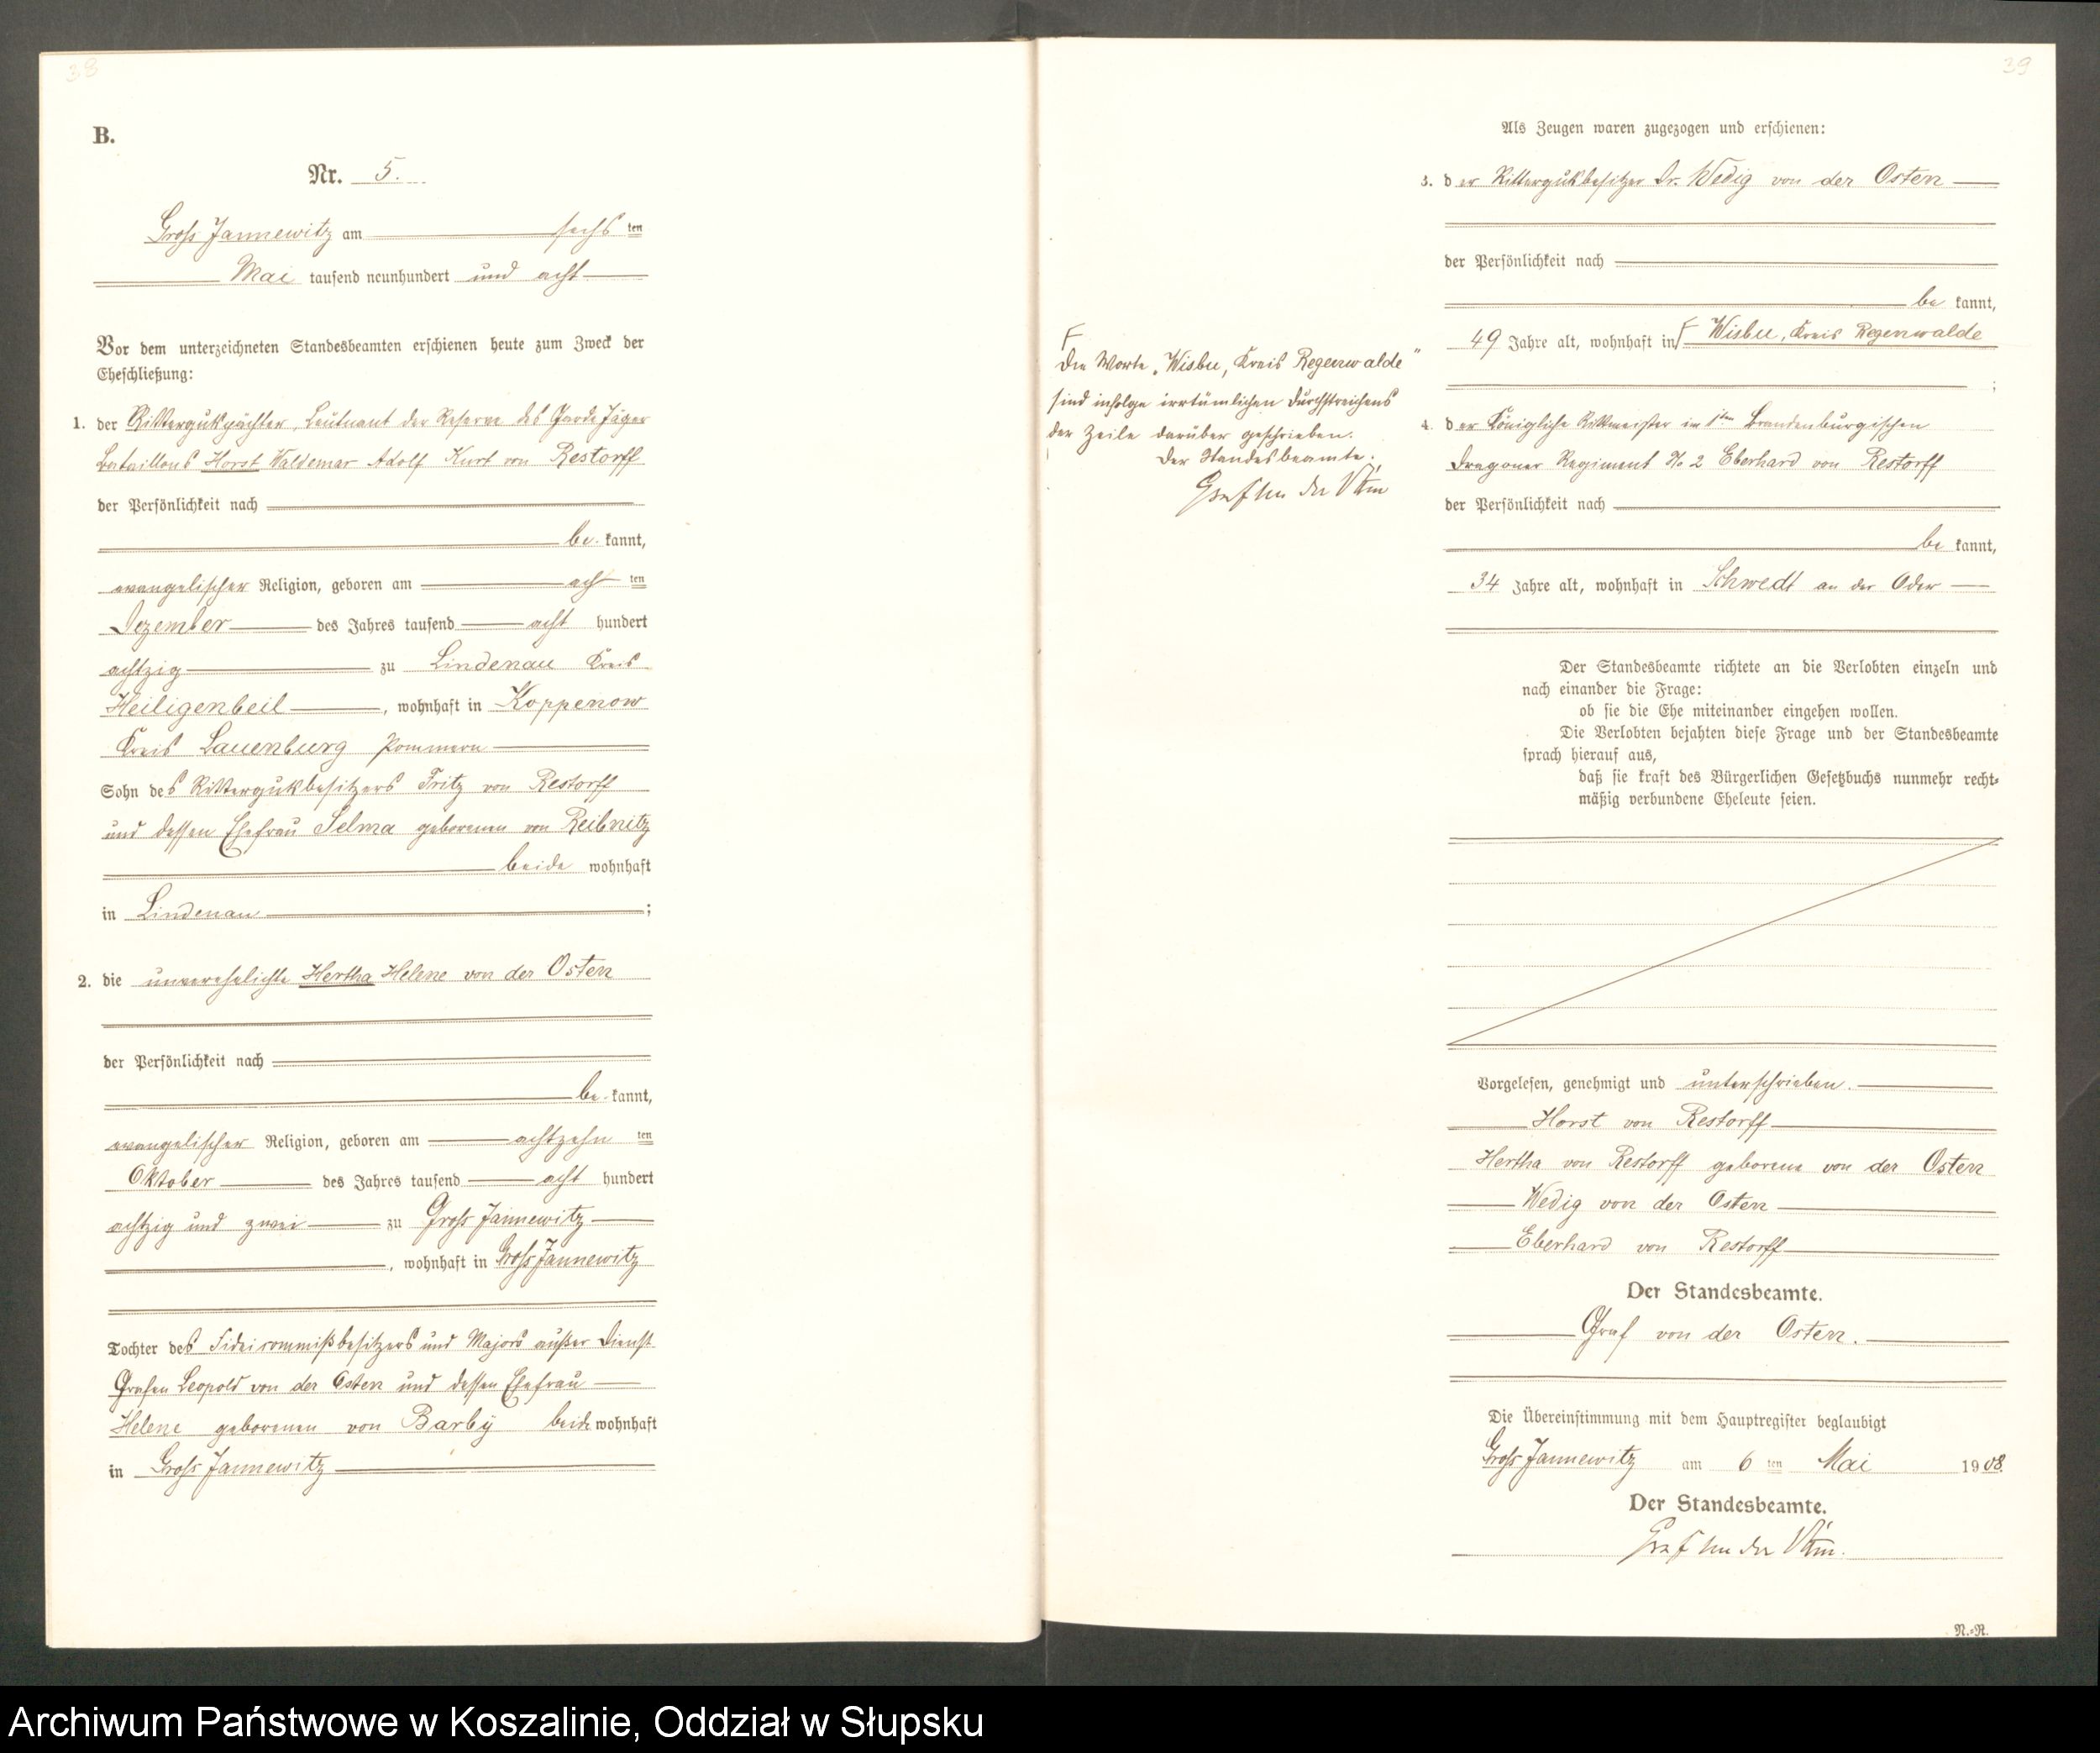 38
B.
Nr. 5.
Gross Jannewitz am sechs ten
Mai tausend neunhundert und acht
Vor dem unterzeichneten Standesbeamten erschienen heute zum Zweck der
Eheschließung:
1. der Rittergutspächter, Leutnant der Reserve des Garde Jäger
Bataillons Horst Waldemar Adolf Kurt von Restorff
der Persönlichkeit nach
be kannt,
evangelischer Religion, geboren am acht ten
Dezember des Jahres tausend acht hundert
achtzig zu Lindenau Kreis
Heiligenbeil, wohnhaft in Koppenow
Kreis Lauenburg Pommern
Sohn des Rittergutsbesitzers Fritz von Restorff
und dessen Ehefrau Selma geborenen von Reibnitz
beide wohnhaft
in Lindenau ;
2. die unverehelichte Hertha Helene von der Osten
der Persönlichkeit nach
be kannt,
evangelischer Religion, geboren am achtzehn ten
Oktober des Jahres tausend acht hundert
achtzig und zwei zu Gross Jannewitz
, wohnhaft in Gross Jannewitz
Tochter des Fideicommißbesitzers und Majors außer Dienst
Grafen Leopold von der Osten und dessen Ehefrau
Helene geborenen von Barby beide wohnhaft
in Gross Jannewitz
39
F
Die Worte „Wisbu, Kreis Regenwalde"
sind infolge irrtümlichen Durchstreichens
der Zeile darüber geschrieben.
Der Standesbeamte.
Graf von der Osten
Als Zeugen waren zugezogen und erschienen:
3. der Rittergutsbesitzer Dr. Wedig von der Osten
der Persönlichkeit nach
be kannt,
49 Jahre alt, wohnhaft in F Wisbu, Kreis Regenwalde
;
4. der Königliche Rittmeister im 1ten Brandenburgischen
Dragoner Regiment No 2 Eberhard von Restorff
der Persönlichkeit nach
be kannt,
34 Jahre alt, wohnhaft in Schwedt an der Oder
Der Standesbeamte richtete an die Verlobten einzeln und
nach einander die Frage:
ob sie die Ehe miteinander eingehen wollen.
Die Verlobten bejahten diese Frage und der Standesbeamte
sprach hierauf aus,
daß sie kraft des Bürgerlichen Gesetzbuchs nunmehr recht-
mäßig verbundene Eheleute seien.
Vorgelesen, genehmigt und unterschrieben.
Horst von Restorff
Hertha von Restorff geborene von der Osten
Wedig von der Osten
Eberhard von Restorff
Der Standesbeamte.
Graf von der Osten.
Die Übereinstimmung mit dem Hauptregister beglaubigt
Gross Jannewitz am 6 ten Mai 1908.
Der Standesbeamte.
Graf von der Osten.
N.-R.
Archiwum Państwowe w Koszalinie, Oddział w Słupsku